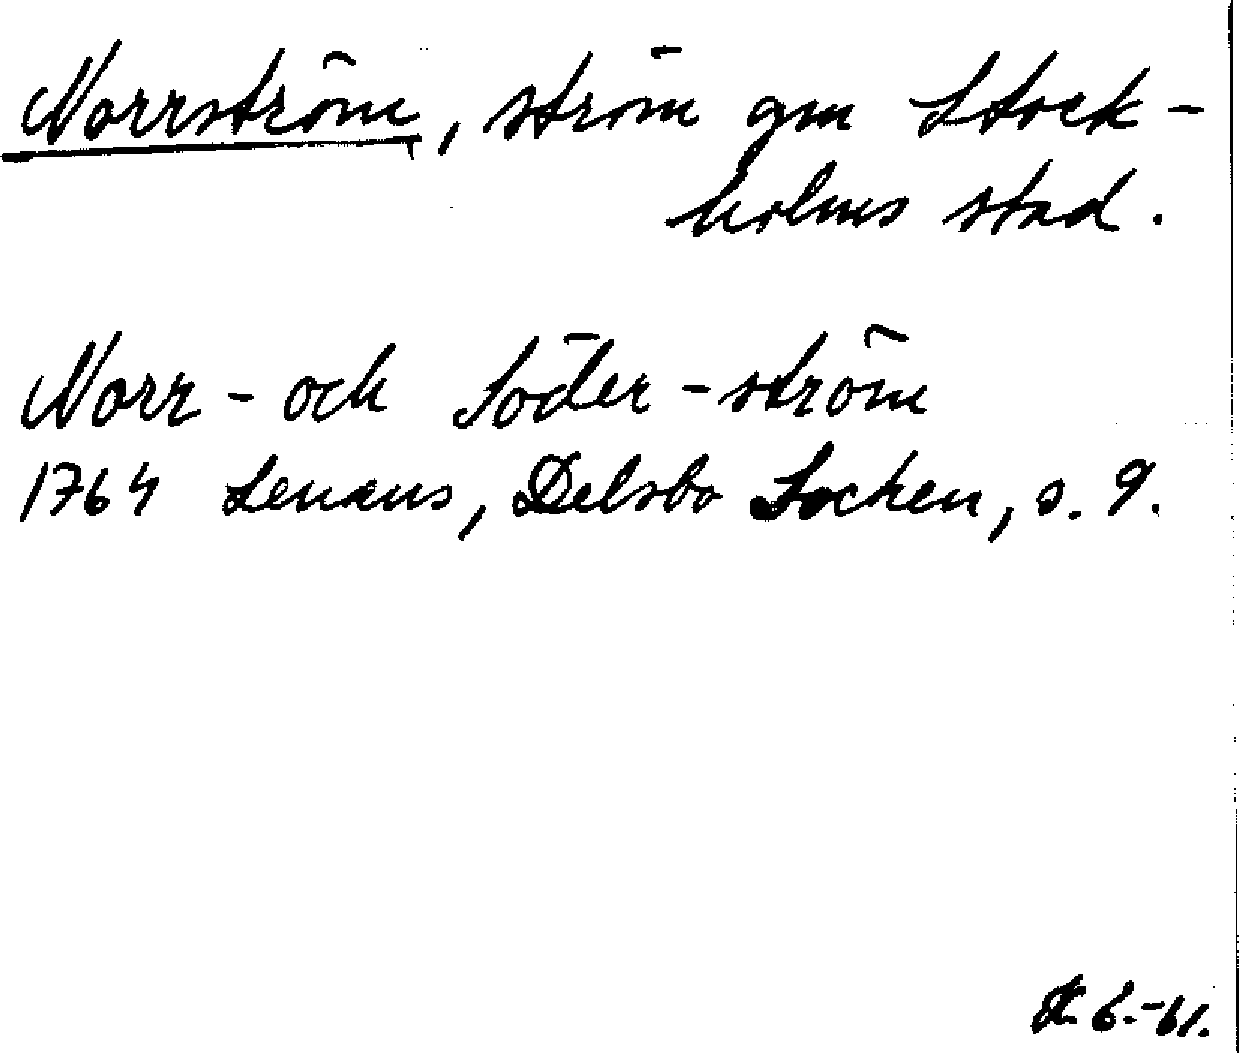 Norrström, ström gm Stock-
holms stad.
Norr- och Söder-ström
1764 Lenæus, Delsbo Socken, s. 9.
6.-61.